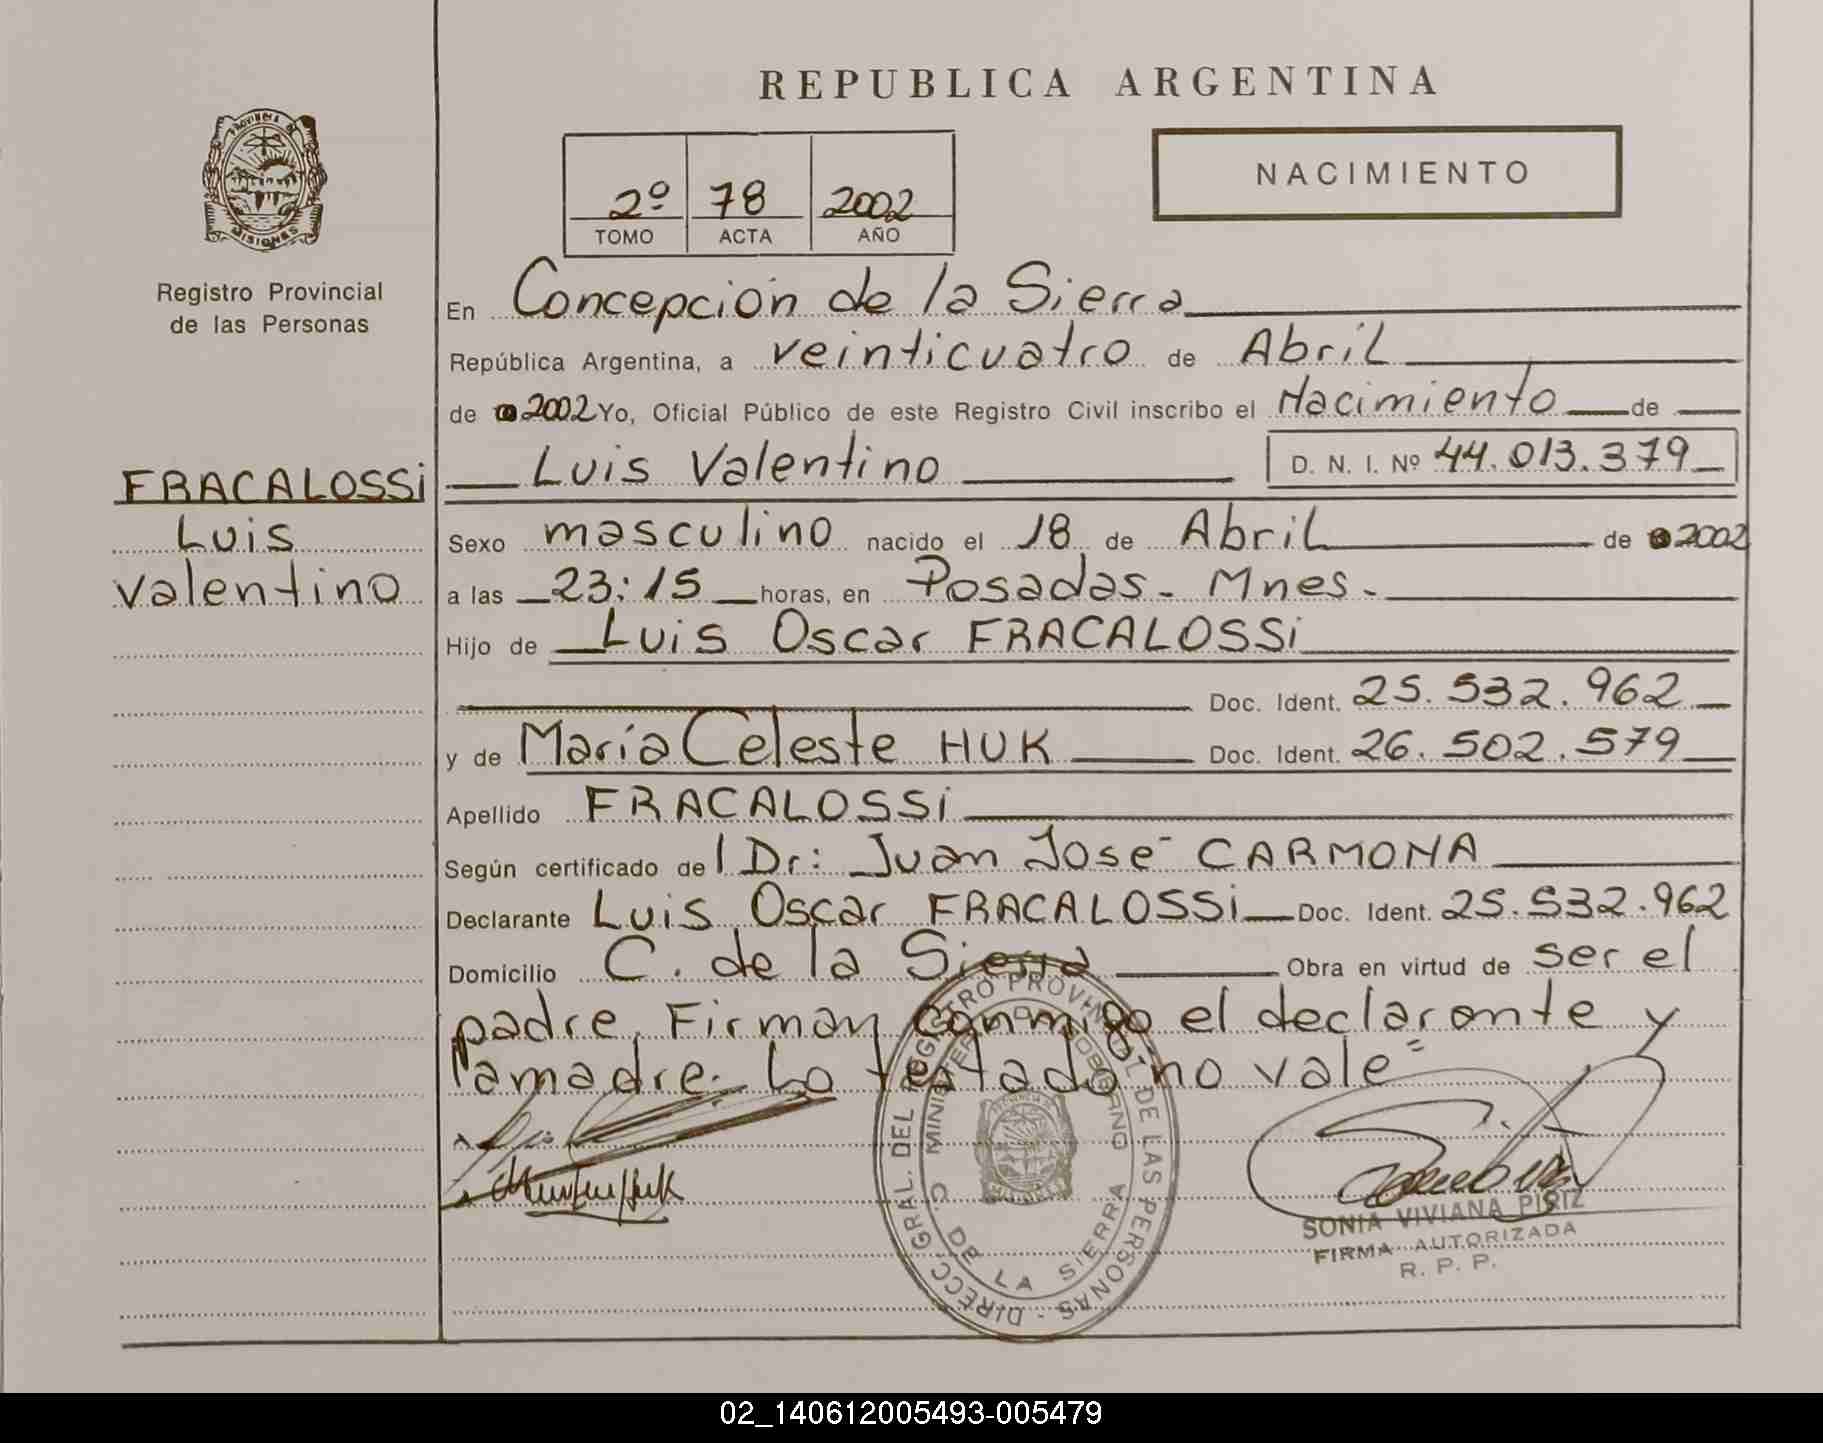 REPUBLICA ARGENTINA
PROVINCIA DE
MISIONES
Registro Provincial
de las Personas
2º 78 2002
TOMO ACTA AÑO
NACIMIENTO
En Concepción de la Sierra
República Argentina, a veinticuatro de Abril
de 2002 Yo, Oficial Público de este Registro Civil inscribo el Nacimiento de
Luis Valentino D. N. I. Nº 44.013.379
FRACALOSSi
Luis
Valentino
Sexo masculino nacido el 18 de Abril de 2002
a las 23:15 horas, en Posadas - Mnes.
Hijo de Luis Oscar FRACALOSSi
Doc. Ident. 25.532.962
y de María Celeste HUK Doc. Ident. 26.502.579
Apellido FRACALOSSi
Según certificado de l Dr: Juan José CARMONA
Declarante Luis Oscar FRACALOSSi Doc. Ident. 25.532.962
Domicilio C. de la Sierra Obra en virtud de ser el
padre. Firman conmigo el declarante y
la madre. Lo testado no vale=
DIRECC. GRAL. DEL REGISTRO PROVINCIAL DE LAS PERSONAS
MINISTERIO DE GOBIERNO
C. DE LA SIERRA
SONIA VIVIANA PIRIZ
FIRMA AUTORIZADA
R. P. P.
02_140612005493-005479